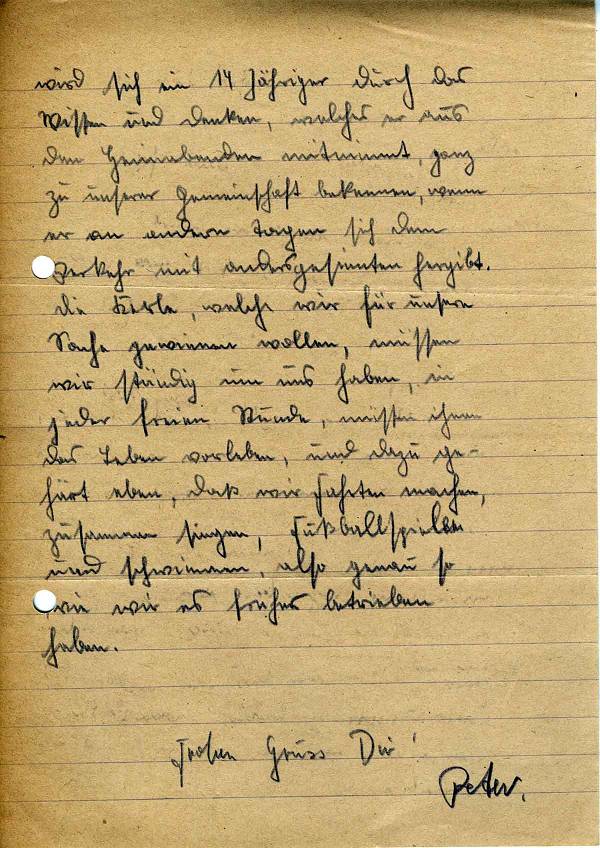 wird sich ein 14 Jähriger durch das
Wissen und Denken, welches er aus
den Heimabenden mitnimmt, ganz
zu unserer Gemeinschaft bekennen, wenn
er an andern Tagen sich dem
Verkehr mit andersgesinnten hergibt.
Die Kerle, welche wir für unsere
Sache gewinnen wollen, müssen
wir ständig um uns haben, in
jeder freien Stunde, müssen ihnen
das Leben vorleben, und dazu ge-
hört eben, daß wir Fahrten machen,
zusammen singen, Fußballspielen
und schwimmen, also genau so
wie wir es früher betrieben
haben.
Frohen Gruss Dir!
Peter.